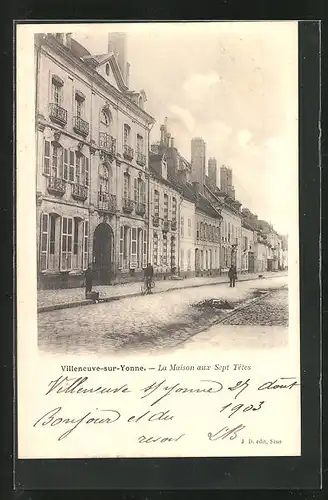 Villeneuve-sur-Yonne. — La Maison aux Sept Têtes
Villeneuve s/ Yonne 27 août
1903
Bonjour et au
revoir LB
J. D. édit, Sens